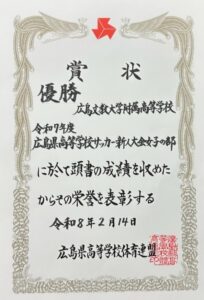 賞状
優勝
広島文教大学附属高等学校
令和7年度
広島県高等学校サッカー新人大会女子の部
に於て頭書の成績を収めた
からその栄誉を表彰する
令和8年2月14日
広島県高等学校体育連盟